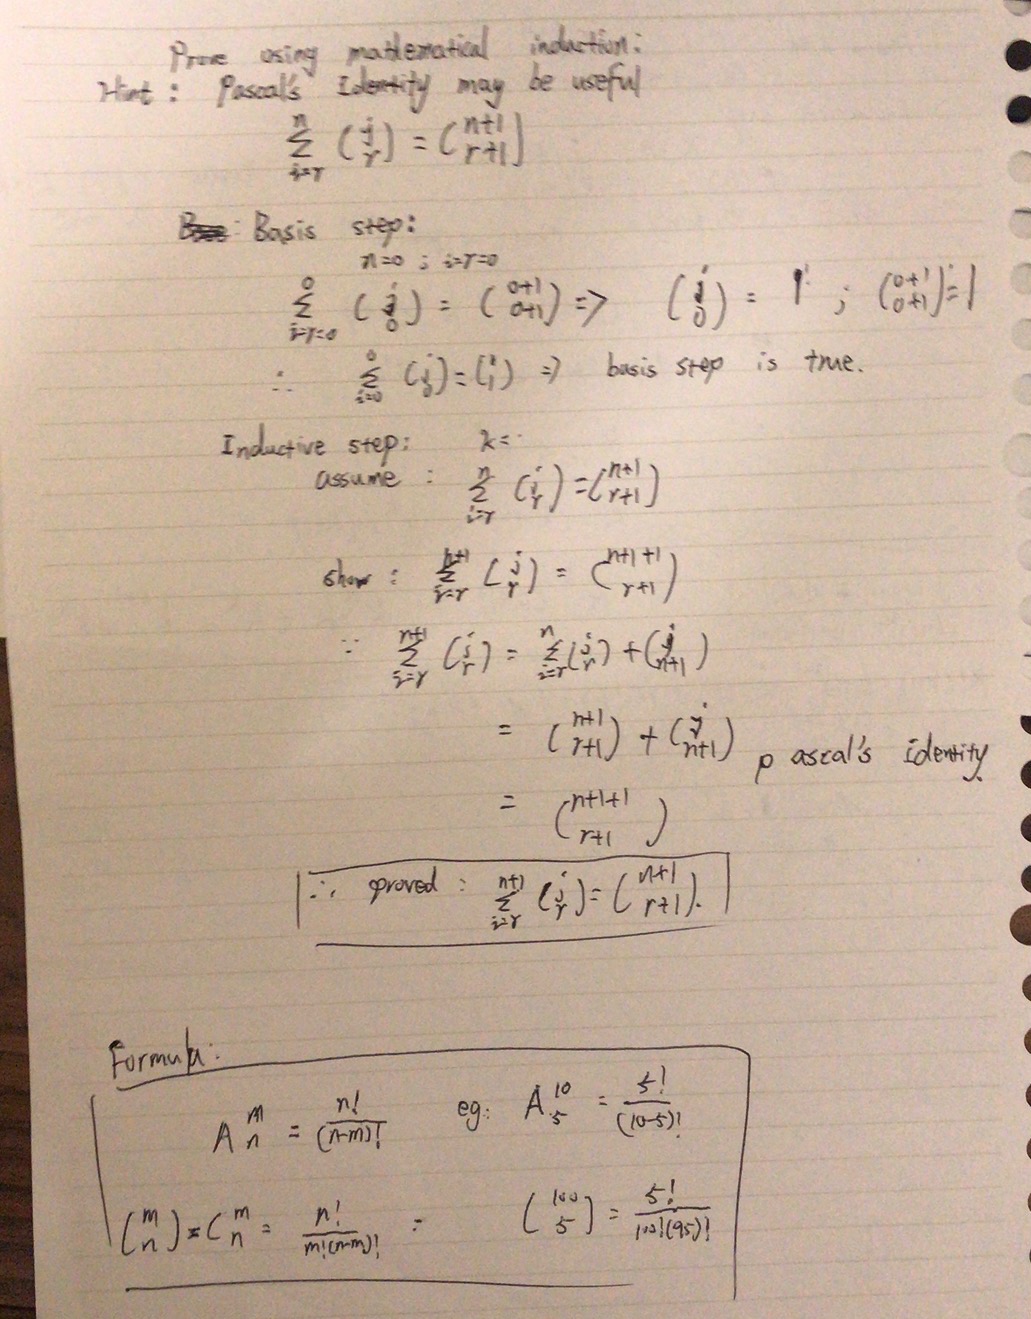 Prove using mathematical induction:
Hint : Pascal's Identity may be useful
n∑j=r (j r) = (n+1 r+1)
Basis step:
n=0 ; j=r=0
0∑j=r=0 (j 0) = (0+1 0+1) => (j 0) = 1 ; (0+1 0+1) = 1
∴ 0∑j=0 (j 0) = (1 1) => basis step is true.
Inductive step: k=
assume : n∑j=r (j r) = (n+1 r+1)
show : n+1∑j=r (j r) = (n+1+1 r+1)
∵ n+1∑j=r (j r) = n∑j=r (j r) + (j n+1)
= (n+1 r+1) + (j n+1) pascal's identity.
= (n+1+1 r+1)
∴ proved : n+1∑j=r (j r) = (n+1 r+1).
Formula:
A m n = n!/(n-m)! eg: A 10 5 = 5!/(10-5)!
(m n) = C m n = n!/m!(n-m)! = (100 5) = 5!/100!(95)!